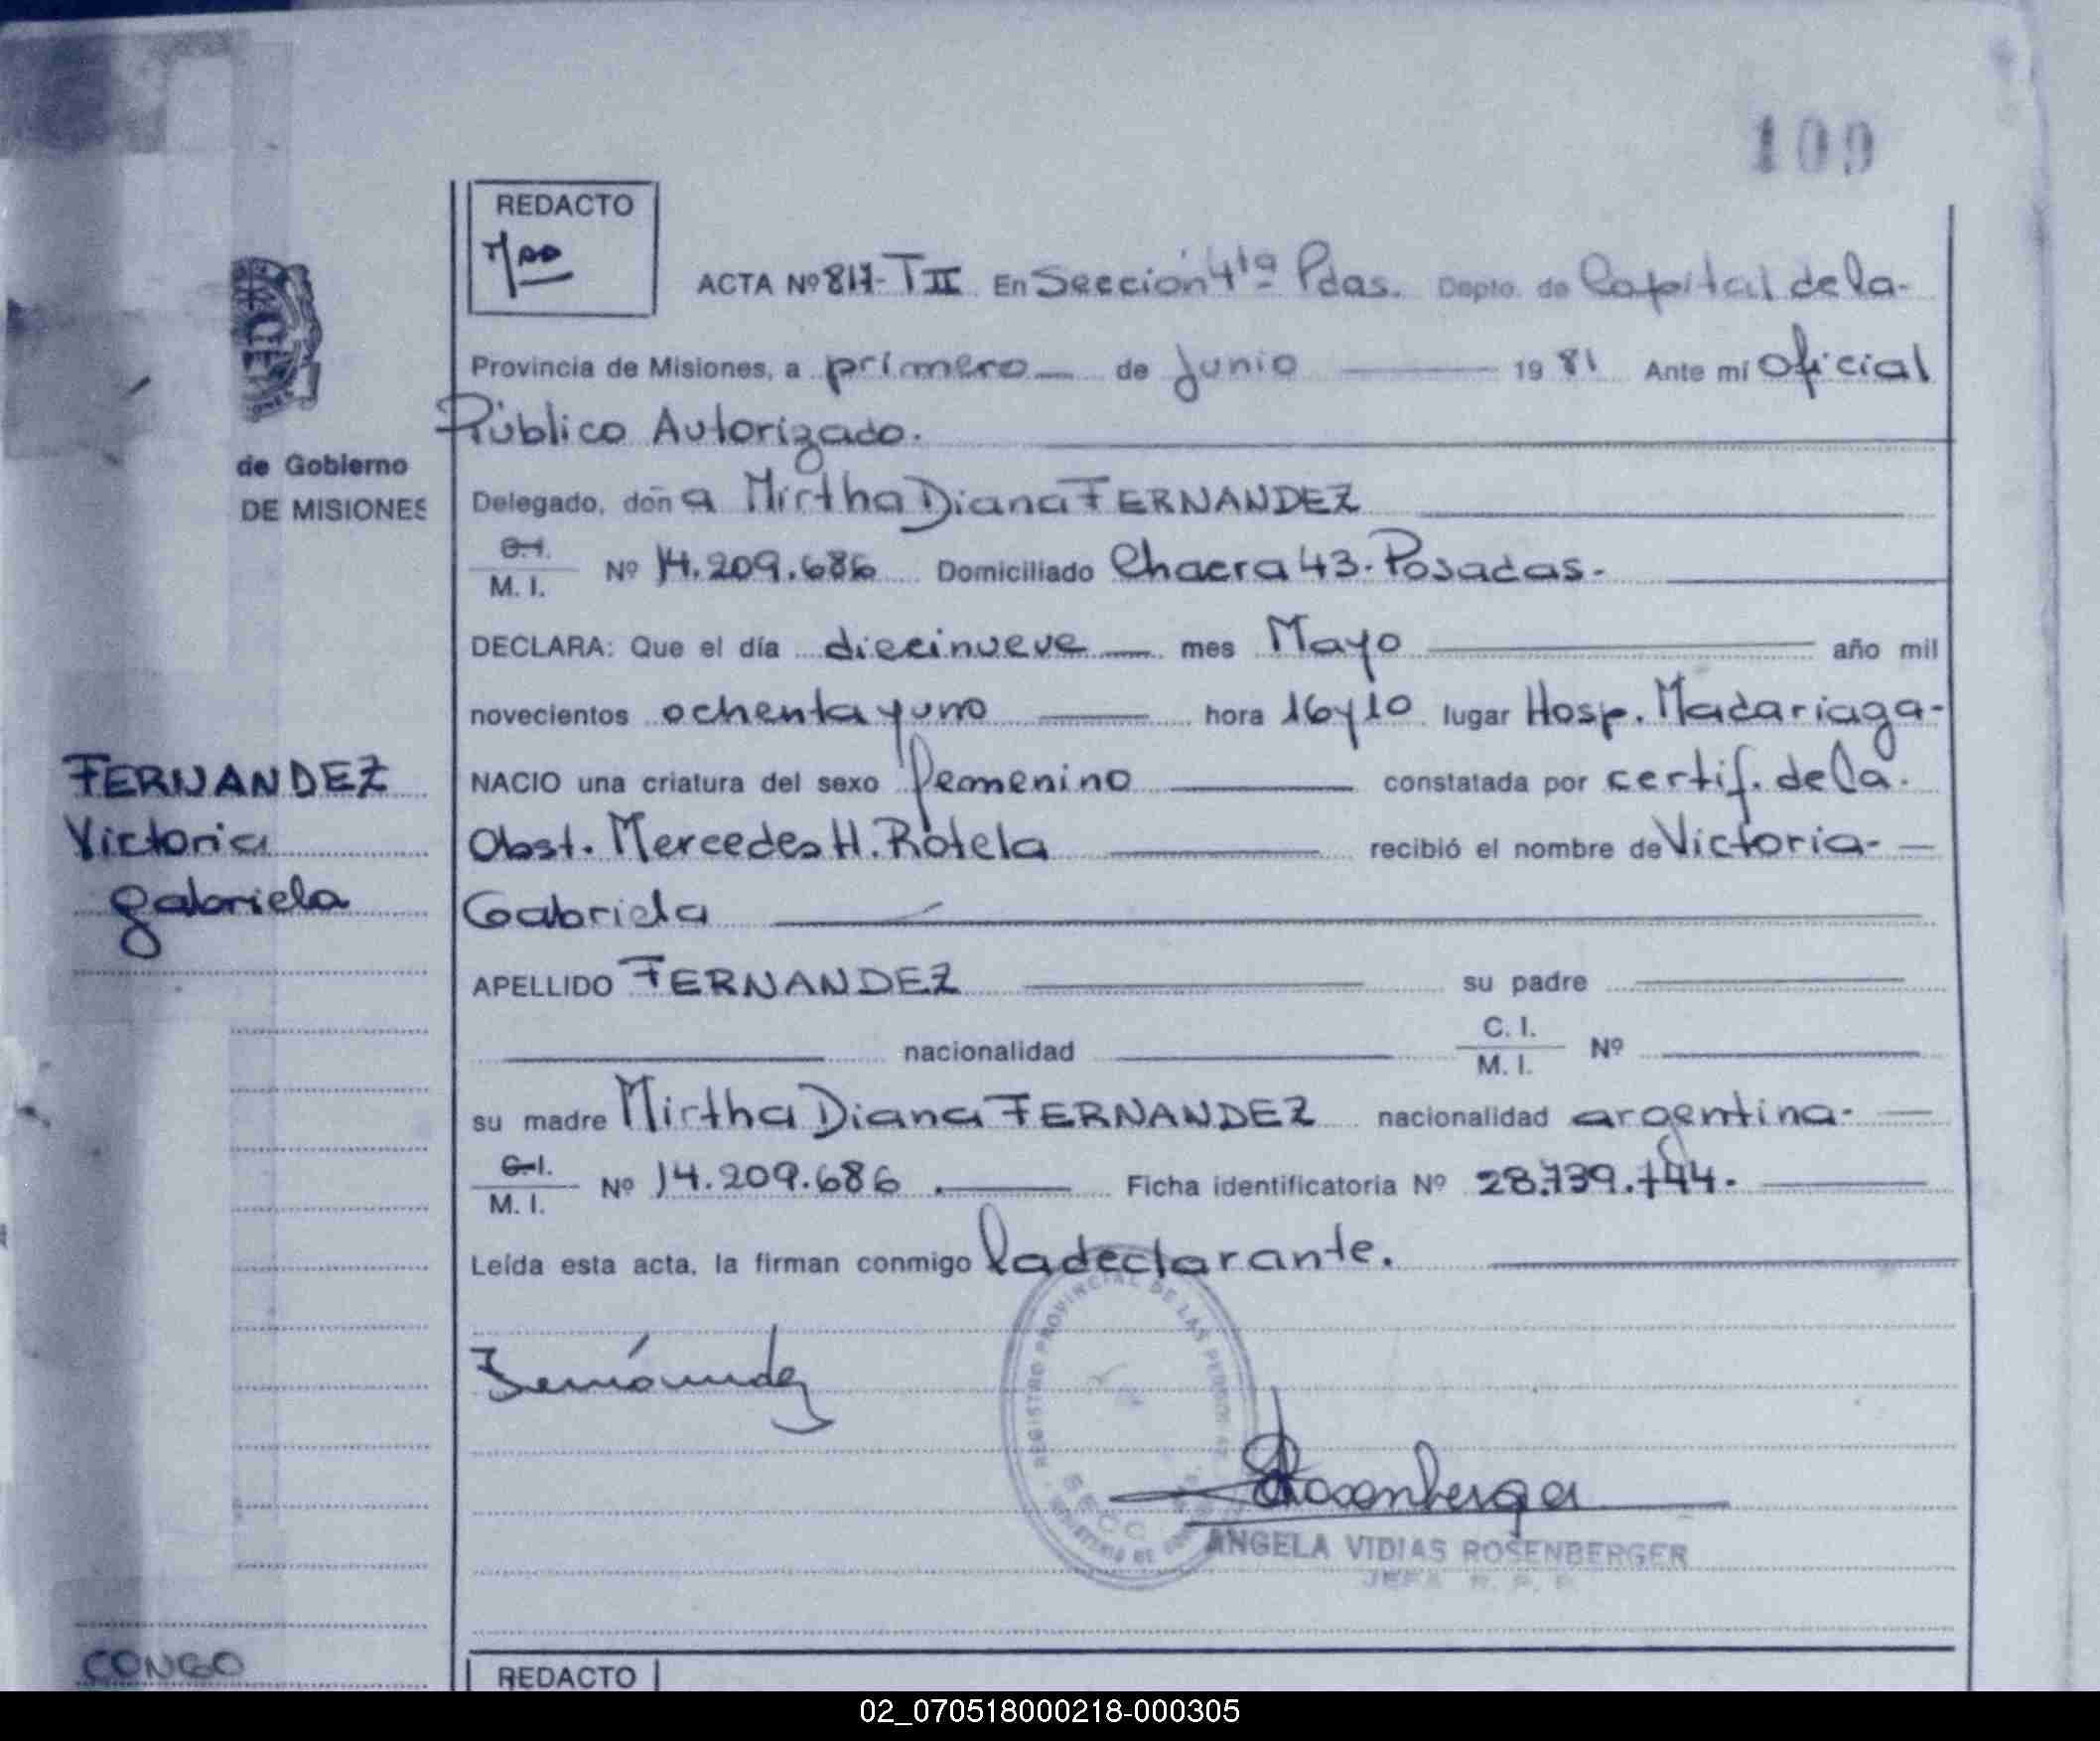 109
REDACTO
ACTA Nº 817-TII En Sección 4ta Pdas. Depto. de Capital de la-
Provincia de Misiones, a primero de Junio 1981 Ante mí Oficial
Público Autorizado.
de Gobierno
DE MISIONES
Delegado, doña Mirtha Diana FERNANDEZ
C.I.
M. I. Nº 14.209.686 Domiciliado Chacra 43. Posadas.
DECLARA: Que el día diecinueve mes Mayo año mil
novecientos ochenta y uno hora 16y10 lugar Hosp. Madariaga-
FERNANDEZ
Victoria
Gabriela
NACIO una criatura del sexo femenino constatada por certif. de la.
Obst. Mercedes H. Rotela recibió el nombre de Victoria-
Gabriela
APELLIDO FERNANDEZ su padre
nacionalidad C. I.
M. I. Nº
su madre Mirtha Diana FERNANDEZ nacionalidad argentina.
C.I.
M. I. Nº 14.209.686. Ficha identificatoria Nº
Leída esta acta, la firman conmigo la declarante.
REGISTRO PROVINCIAL DE LAS PERSONAS
SECC
Fernández
Rosenberger
ANGELA VIDIAS ROSENBERGER
JEFA R. P. P.
CONGO
REDACTO
02_070518000218-000305